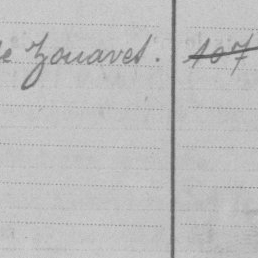 de Zouaves. 107